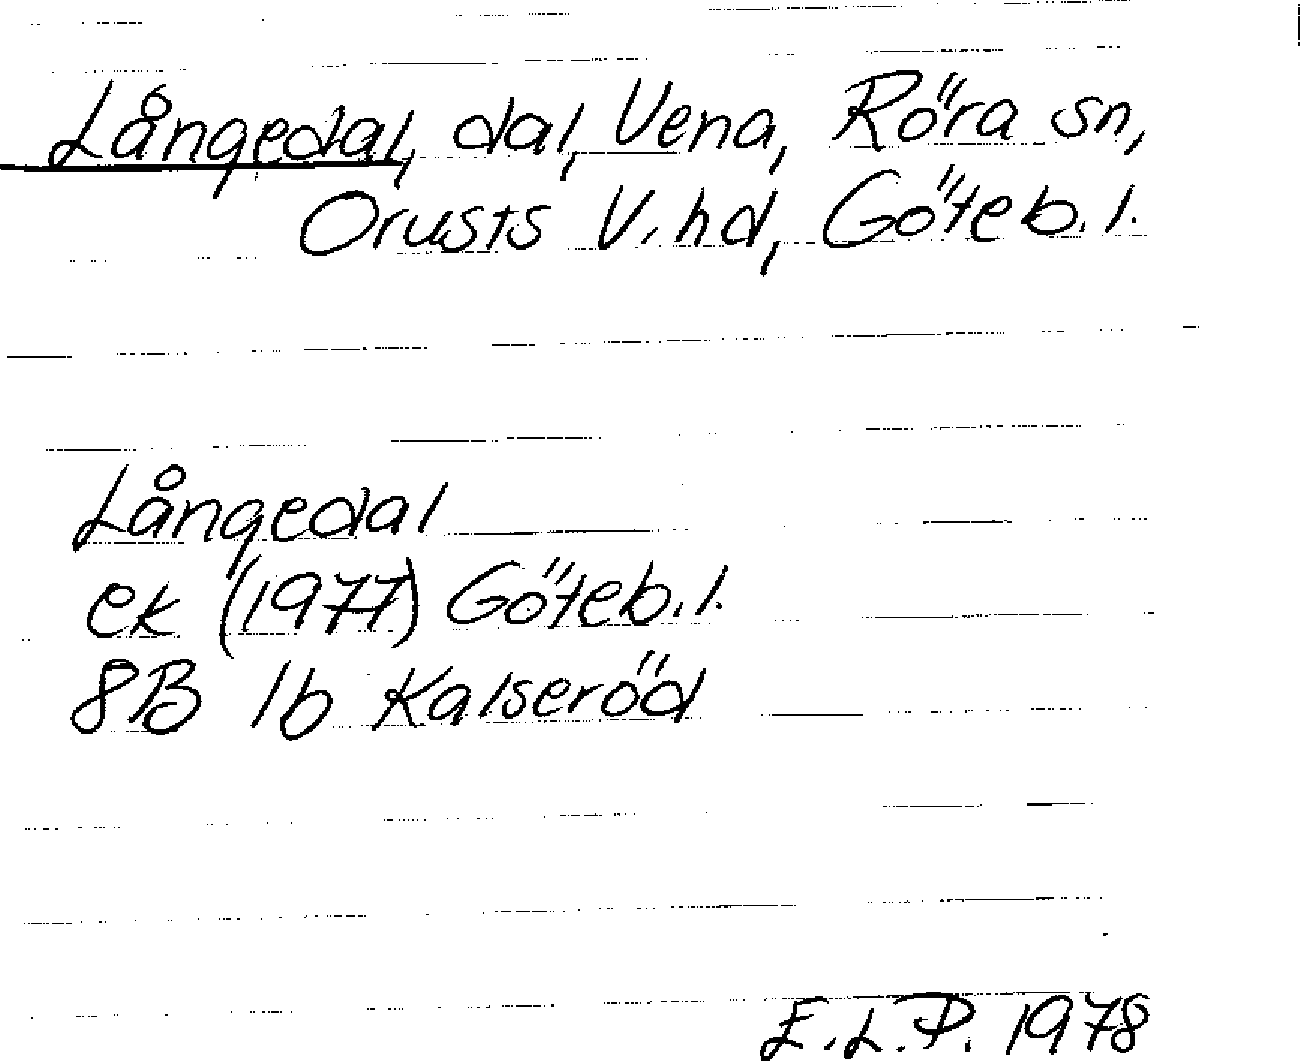 Långedal, dal, Vena, Röra sn,
Orusts V. hd, Göteb. l.
Långedal
ek (1977) Göteb. l.
8B 1b Kalseröd
E.L.P. 1978